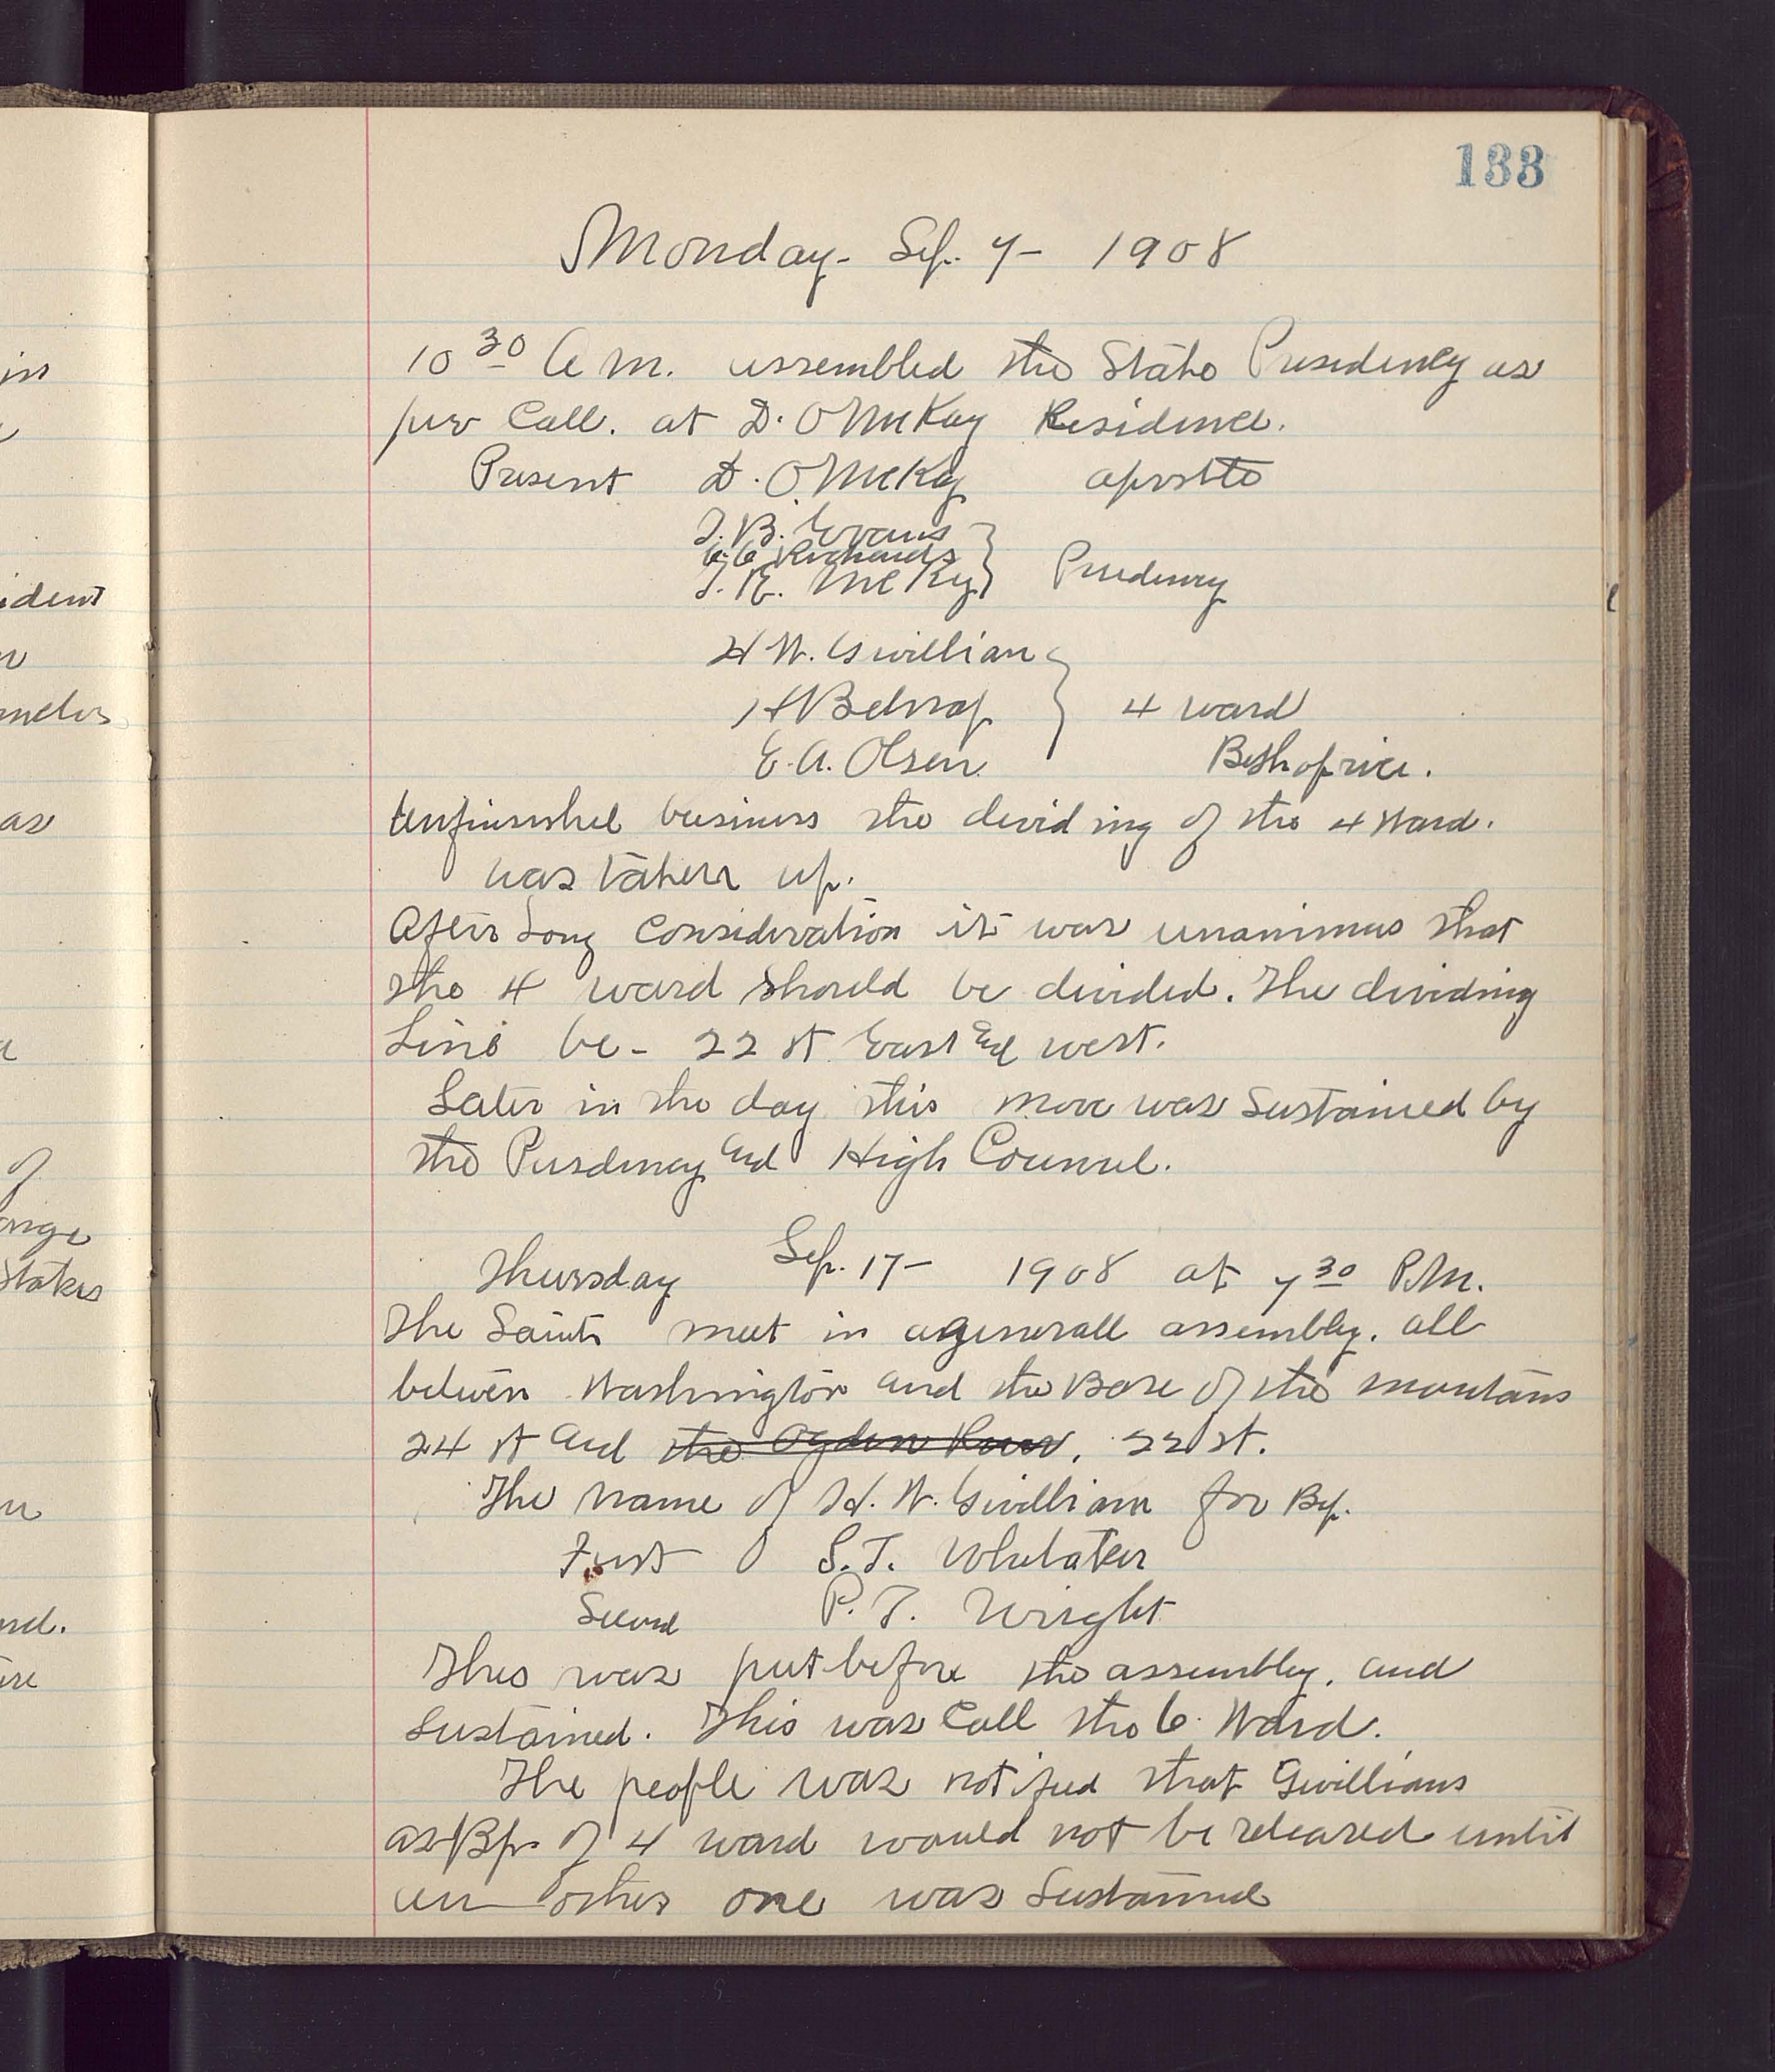 133
Monday - Sep. 7 - 1908
10 30 A M. assembled the Stake Presidency as
per Call. at D. O McKay Residence.
Present D. O. McKay apostle
T. B. Evans
C. C. Richards
T. E. McKay Presidency
H W. Gwilliam
H Belnap 4 ward
E. A. Olsen Bishopric.
Unfinished business the dividing of the 4 Ward.
was taken up.
After Long Consideration it was unanimus that
the 4 ward Should be divided. The dividing
Line be - 22 st East and west.
Later in the day this move was Sustained by
the Presdency and High Council.
Thursday Sep. 17 - 1908 at 7 30 P.M.
The Saints meet in a generall assembly. all
between Washington and the Base of the mountains
24 st and the Ogden River. 22 st.
The Name of H. W. Gwilliam for Bp.
First S. T. Whitaker
Second P. T. Wright
This was put before the assembly. and
Sustained. This was Call the 6. Ward.
The people was notified that Gwilliams
as Bp. of 4 ward would not be released until
an other one was Sustained
in
ident
meeters
as
of
Stakes